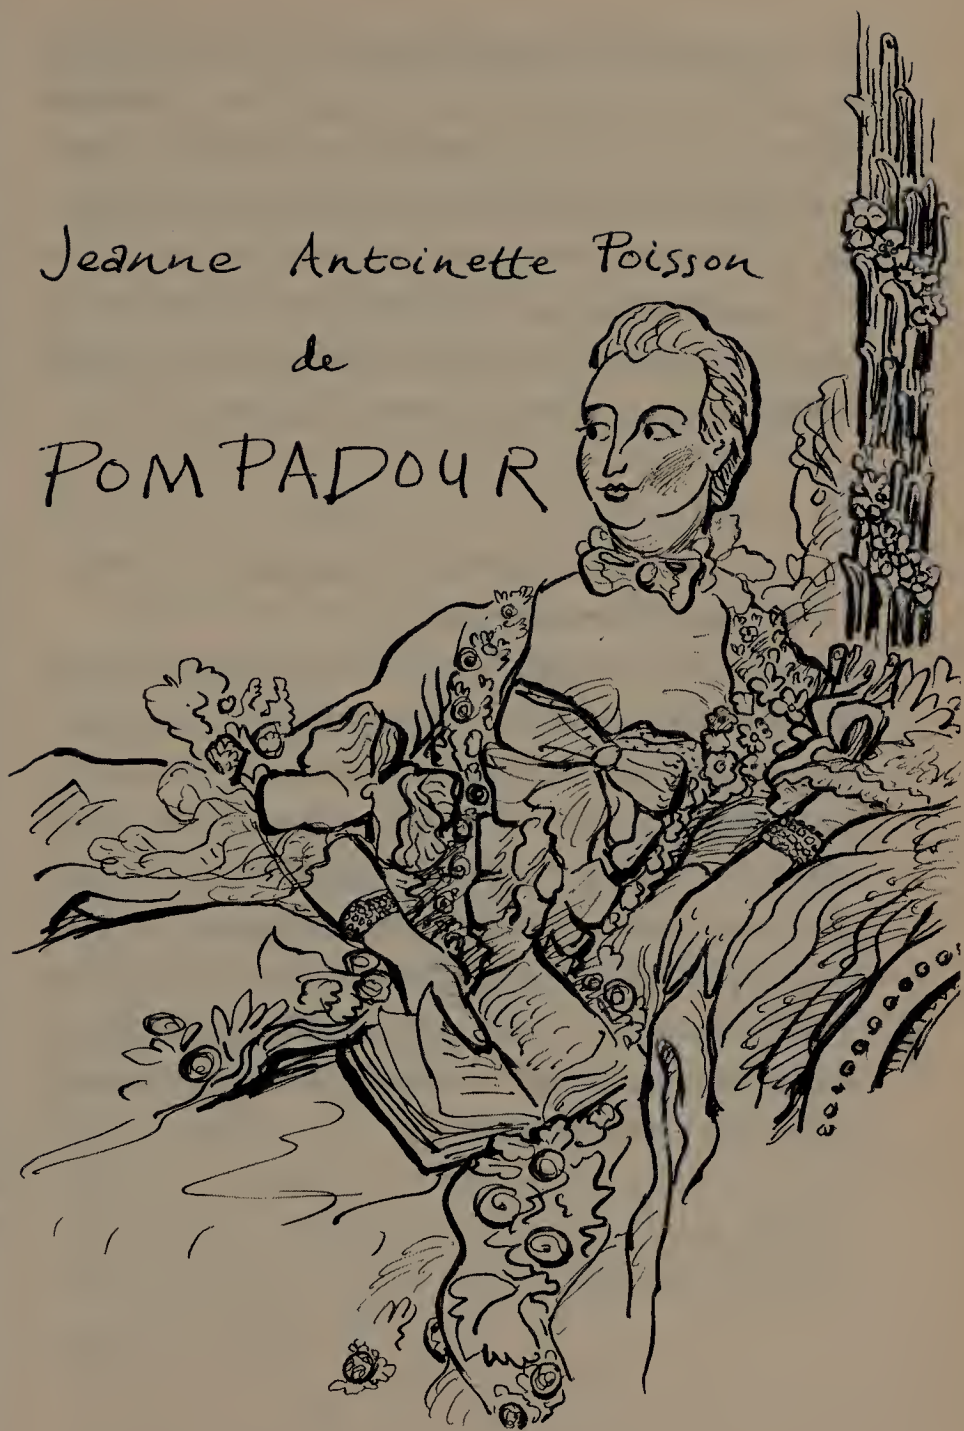 Jeanne Antoinette Poisson
de
POMPADOUR